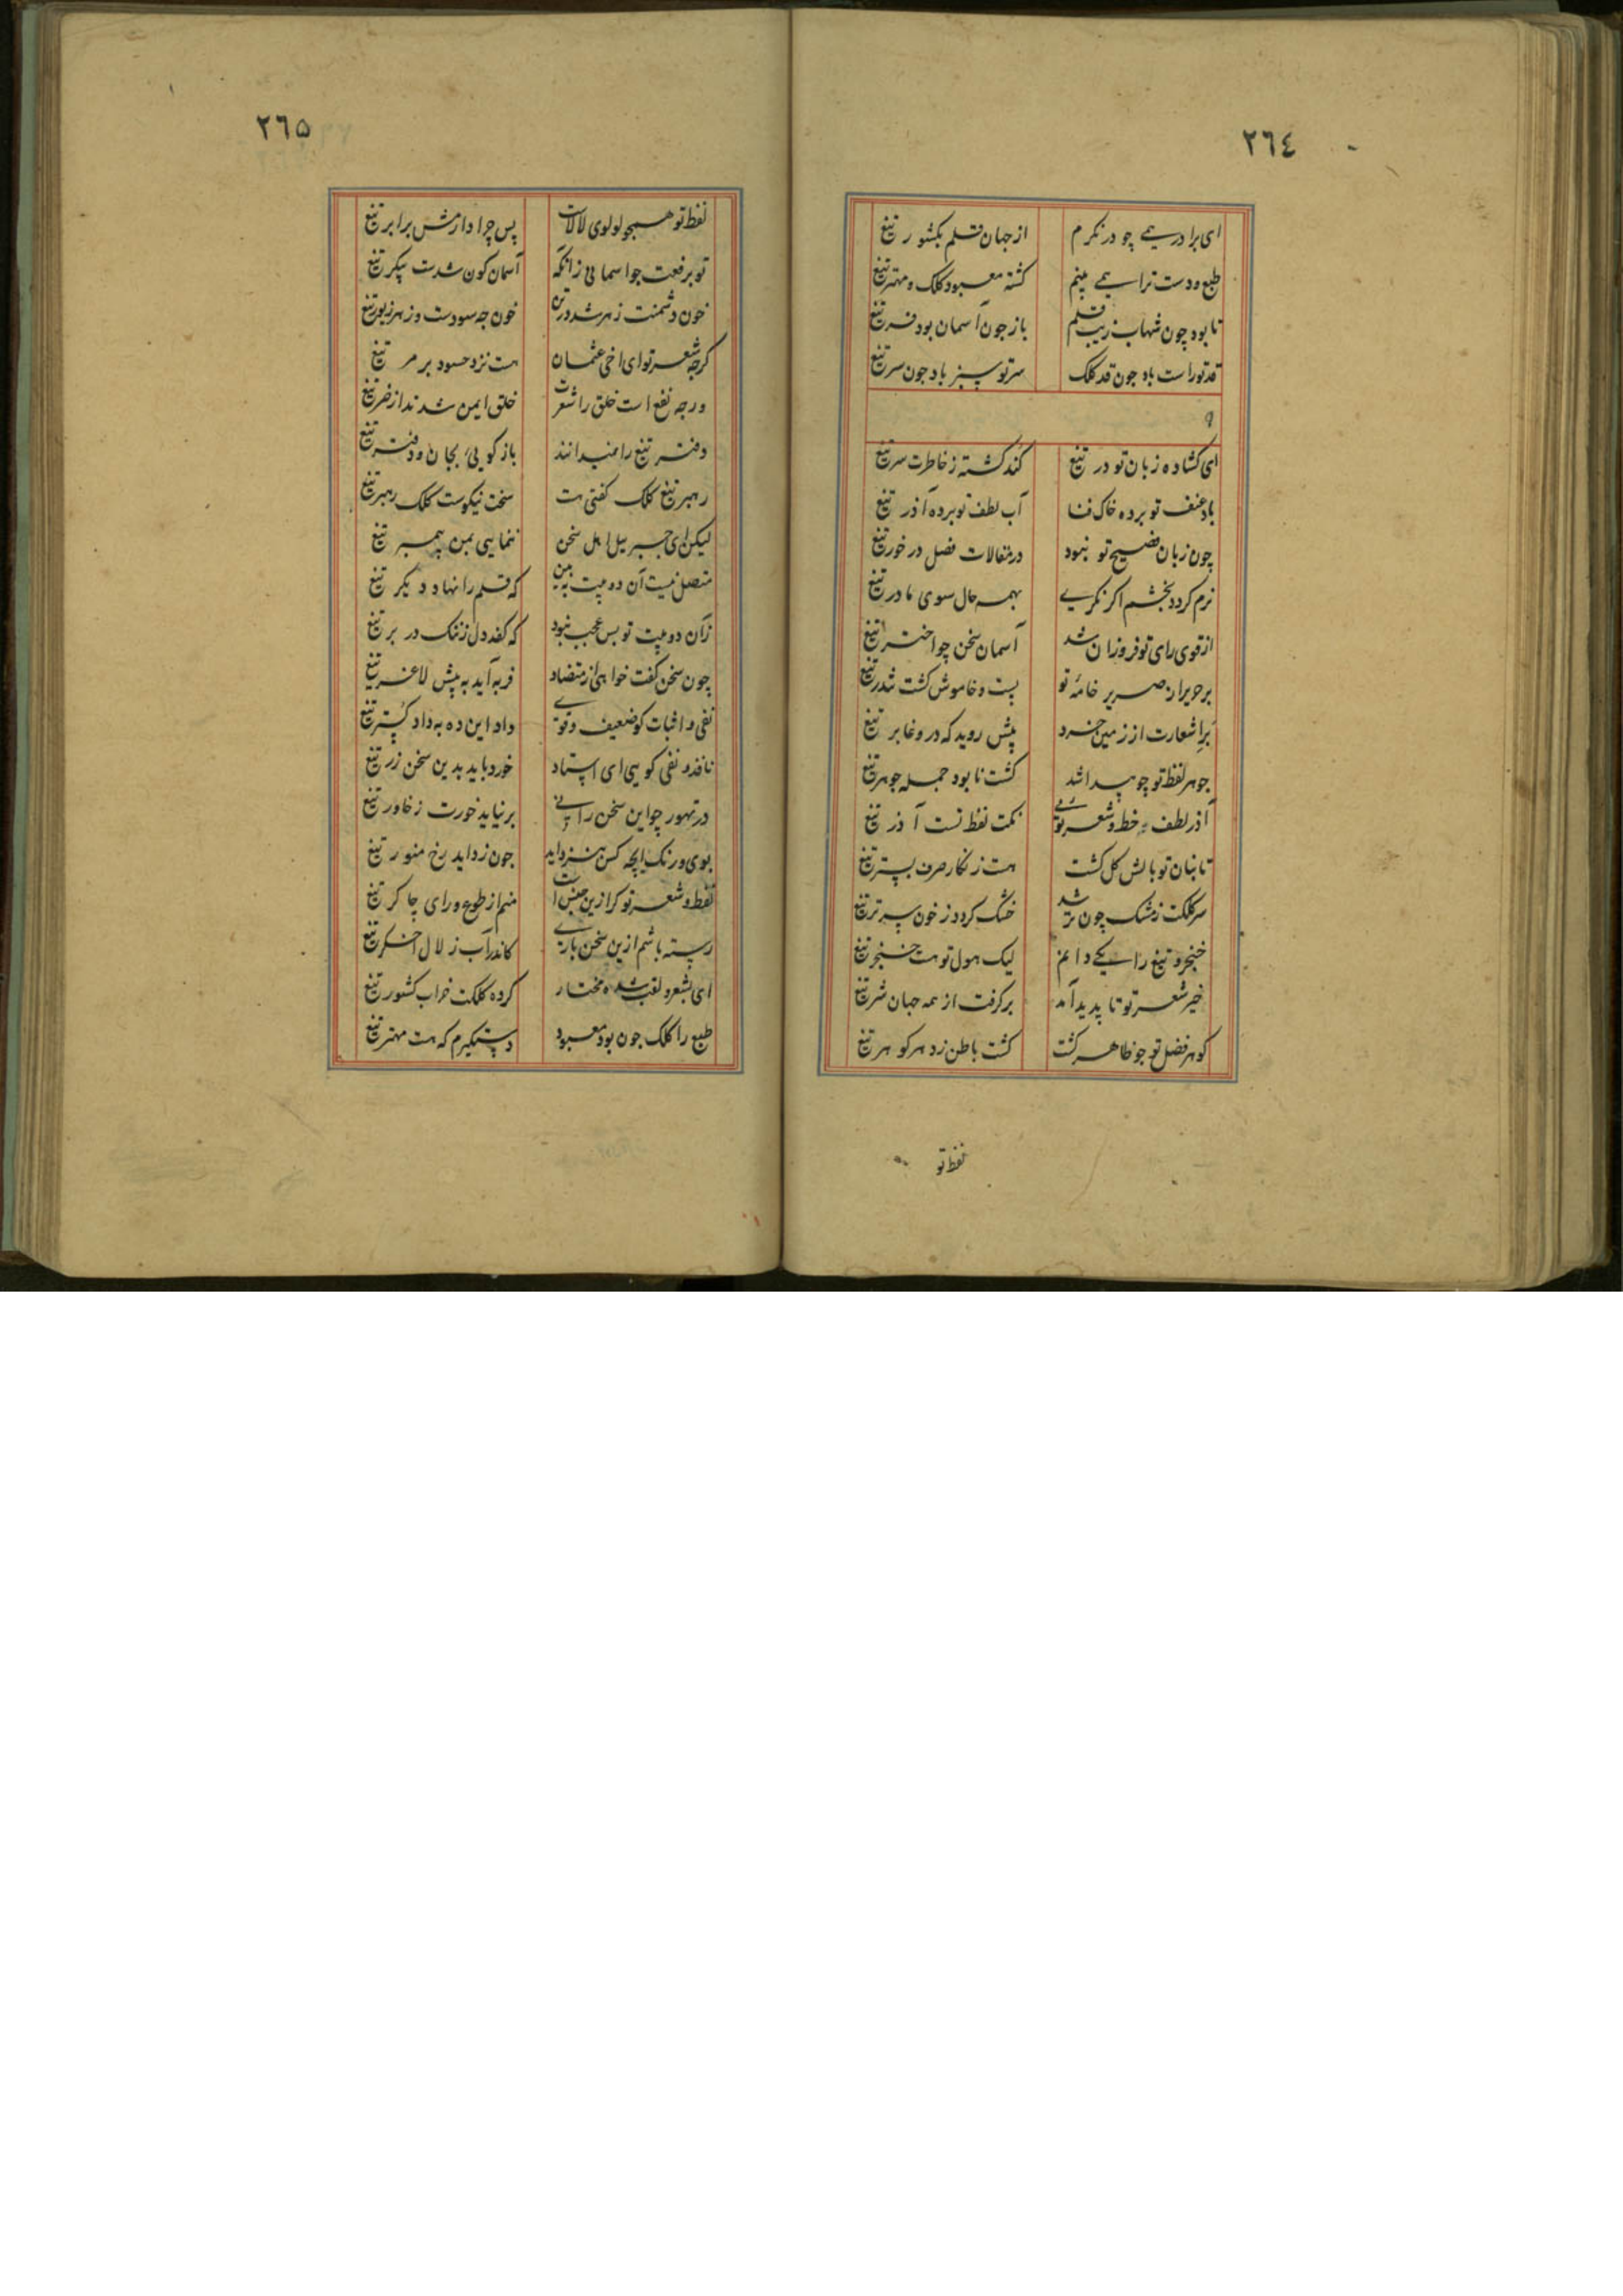 ٢٦٤
ای برادر همی چو در نکرم از جهان قلم بکشور تیغ
طبع و دست ترا همی بینم کشته معبود کلک و مهتر تیغ
تا بود چون شهاب زیب قلم باز جون آسمان بود فر تیغ
قد تو راست باد جون قد کلک سر تو سبز باد جون سر تیغ
ای کشاده زبان تو در تیغ کند کشته ز خاطرت سر تیغ
باد عنف تو برده خاک فنا آب لطف تو برده آذر تیغ
چون زبان فصیح تو نبود در مقالات فصل در خور تیغ
نرم کردد بخشم اکر نکری بهمه حال سوی مادر تیغ
از قوی رای تو فروزان شد آسمان سخن چو اختر تیغ
بر حریر ان صریر خامهٔ تو بست و خاموش کشت تندر تیغ
بر اشعارت از زمین خرد پیش روید که در وغا بر تیغ
جوهر لفظ تو چو پیدا شد کشت نابود جمله جوهر تیغ
آذر لطف خط و شعر تو نکت نفط تست آذر تیغ
تا بنان تو بالش کل کشت هست زنکار صرف بستر تیغ
سر کلکت ز مشک چون تر شد خشک کردد ز خون سر تر تیغ
خنجر و تیغ را یکی دانم لیک هول تو هست خنجر تیغ
خیر شعر تو تا پدید آمد برکرفت از همه جهان شر تیغ
کوهر فضل تو جو ظاهر کشت کشت باطن زد هر کوهر تیغ
نفط تو
٢٦٥
نفط تو همجو لولوی لالاست پس چرا دارمش برابر تیغ
تو برفعت جو آسمانی زانکه آسمان کون شدست پیکر تیغ
خون دشمنت زهر شد در تن خون جه سودست و زهر زیور تیغ
کرجه شعر تو ای اخی عثمان هست نزد حسود بر مر تیغ
ورجه نفع است خلق را شعرت خلق ایمن شدند از ضر تیغ
دفتر تیغ را نمیدانند باز کویی بجان و دفتر تیغ
رهبر تیغ کلک کفتی هست سخت نیکوست کلک رهبر تیغ
لیکن ای جبرییل اهل سخن ننمایی بمن پیمبر تیغ
متصل نیست آن دو بیت ببین که قلم را نهاد دیکر تیغ
زآن دو بیت تو بس عجب نبود که کفد دل ز ننک در بر تیغ
چون سخن کفت خواهی از متضاد فربه آید به پیش لاغر تیغ
نفی و اثبات کو ضعیف و قوی داد این ده به داد کستر تیغ
نافذ و نفی کویی ای استاد خورد باید بدین سخن زر تیغ
در تهور چو این سخن رانی بر نیاید خورت ز خاور تیغ
بوی و رنک ایچه کس نزداید جون زداید رخ منور تیغ
نفط و شعر تو کر ازین جنس است منم از طوع و رای چاکر تیغ
رسته باشم ازین سخن باری کاندر آب زلال اخکر تیغ
ای بشعر و لقب شده مختار کرده کلکت خراب کشور تیغ
طبع را کلک جون بود معبود دستکیرم که هست مهتر تیغ